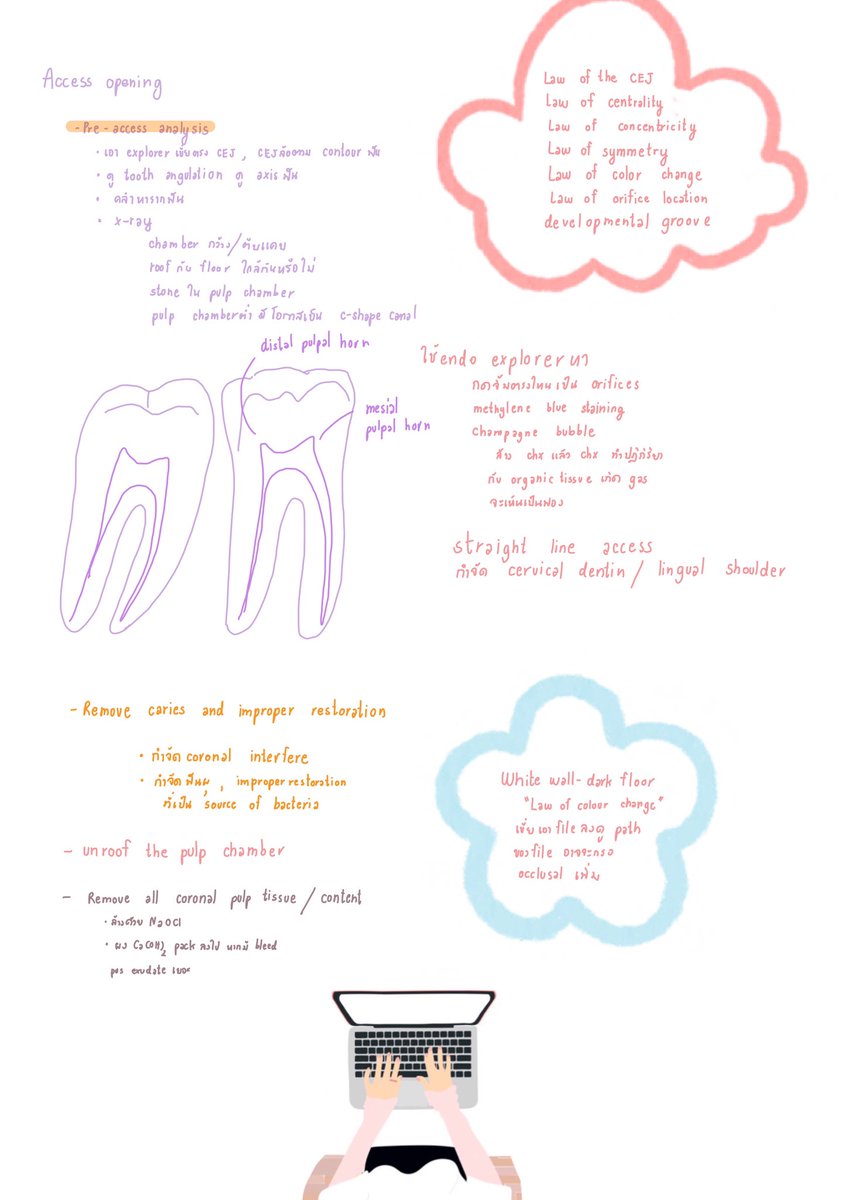 Access opening
- Pre - access analysis
• เอา explorer เขี่ยตรง CEJ , CEJ ล้อตาม contour ฟัน
• ดู tooth angulation ดู axis ฟัน
• คลำหารากฟัน
• x-ray
chamber กว้าง/ตีบแคบ
roof กับ floor ใกล้กันหรือไม่
stone ใน pulp chamber
pulp chamberต่ำ มีโอกาสเป็น c-shape canal
distal pulpal horn
mesial
pulpal horn
Law of the CEJ
Law of centrality
Law of concentricity
Law of symmetry
Law of color change
Law of orifice location
developmental groove
ใช้ endo explorer หา
กดจิ้มตรงไหนเป็น orifices
methylene blue staining
champagne bubble
ล้าง chx แล้ว chx ทำปฏิกิริยา
กับ organic tissue เกิด gas
จะเห็นเป็นฟอง
straight line access
กำจัด cervical dentin / lingual shoulder
- Remove caries and improper restoration
• กำจัด coronal interfere
• กำจัดฟันผุ , improper restoration
ที่เป็น source of bacteria
- unroof the pulp chamber
- Remove all coronal pulp tissue / content
• ล้างด้วย NaOCl
• ผง Ca(OH)2 pack ลงไป หากมี bleed
pus exudate เยอะ
White wall - dark floor
"Law of colour change"
เขี่ย เอา file ลงดู path
ของ file อาจจะกรอ
occlusal เพิ่ม